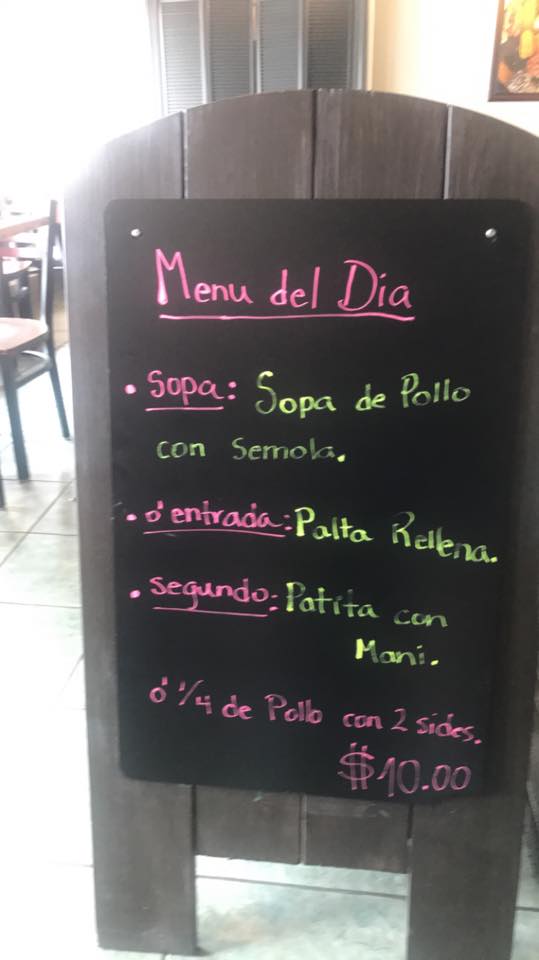 Menu del Dia
• Sopa: Sopa de Pollo
con Semola.
• ó entrada: Palta Rellena.
• Segundo: Patita con
Mani.
ó 1/4 de Pollo con 2 sides.
$10.00